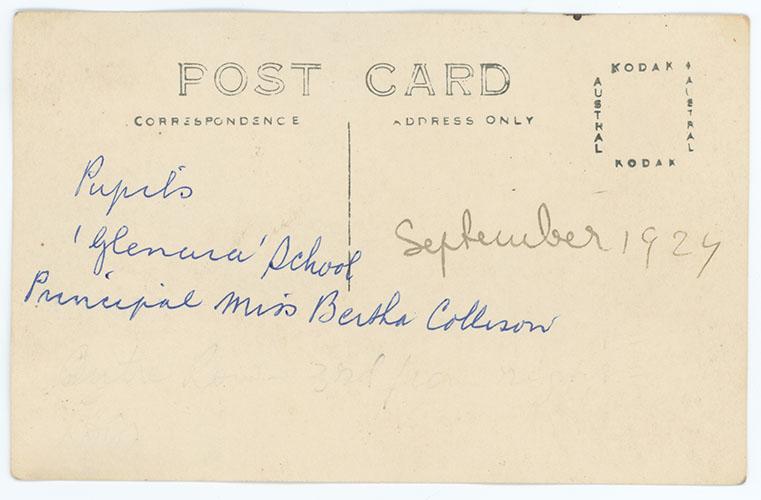 POST CARD
CORRESPONDENCE
ADDRESS ONLY
KODAK
AUSTRAL
AUSTRAL
KODAK
Pupils
'Glenara' School
September 1924
Principal Miss Bertha Collison
3rd from